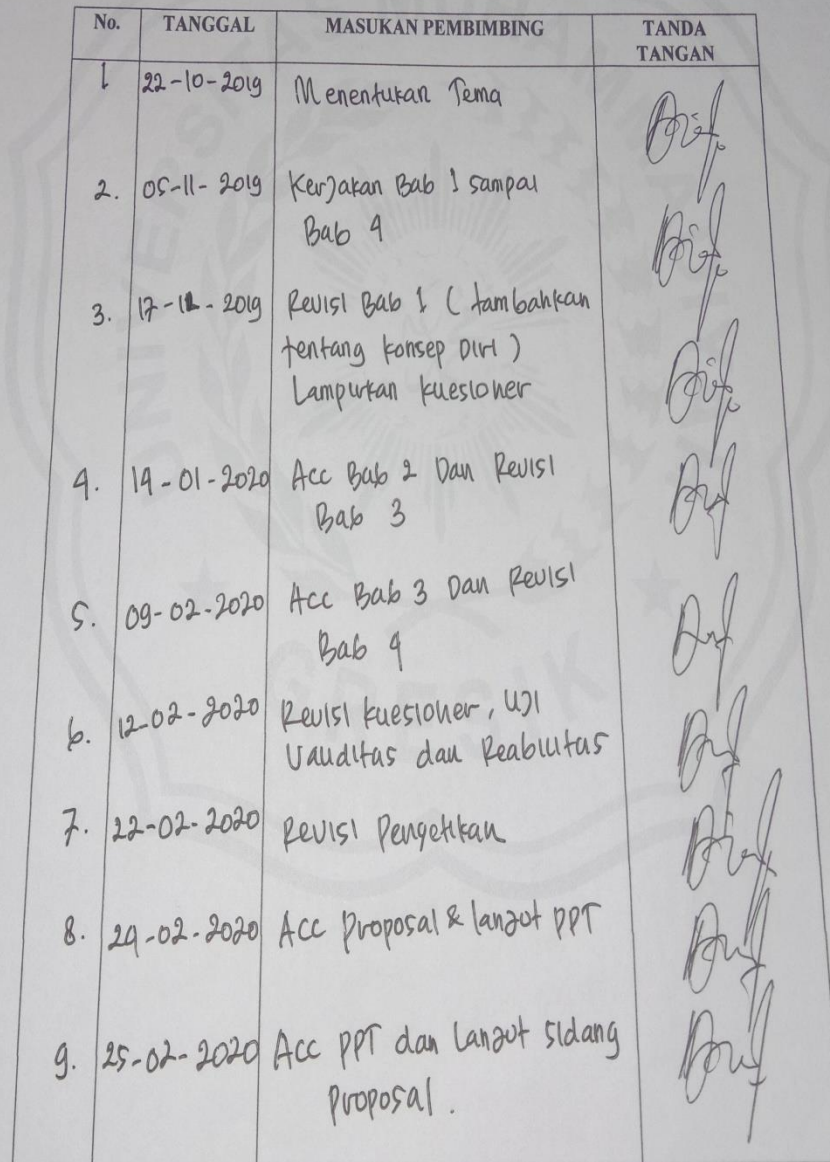 No. TANGGAL MASUKAN PEMBIMBING TANDA TANGAN
1 22-10-2019 Menentukan Tema
2. 05-11-2019 Kerjakan Bab 1 sampai
Bab 4
3. 17-12-2019 Revisi Bab 1 (tambahkan
tentang konsep Diri)
Lampirkan kuesioner
4. 14-01-2020 Acc Bab 2 Dan Revisi
Bab 3
5. 09-02-2020 Acc Bab 3 Dan Revisi
Bab 4
6. 12-02-2020 Revisi kuesioner, uji
Validitas dan Reabilitas
7. 22-02-2020 Revisi Pengetikan
8. 24-02-2020 Acc Proposal & lanjut PPT
9. 25-02-2020 Acc PPT dan Lanjut sidang
proposal.